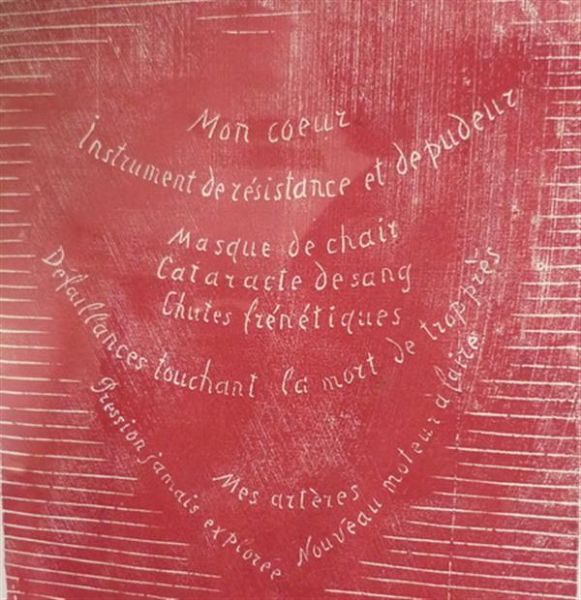 Mon coeur
Instrument de résistance et de pudeur
Masque de chair
Cataracte de sang
Chutes frénétiques
Défaillances touchant la mort de trop près
Mes artères
Pression jamais explorée
Nouveau moteur à faire